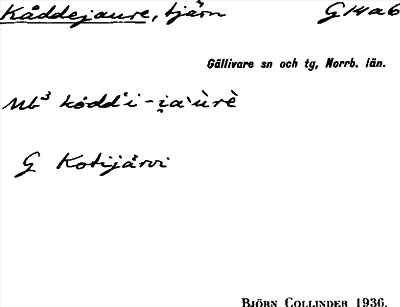 Kåddejaure, tjärn G14a6
Gällivare sn och tg, Norrb. län.
Nb³ kòdd'i-i̯a'ùrè
G Kotijärvi
BJÖRN COLLINDER 1936.